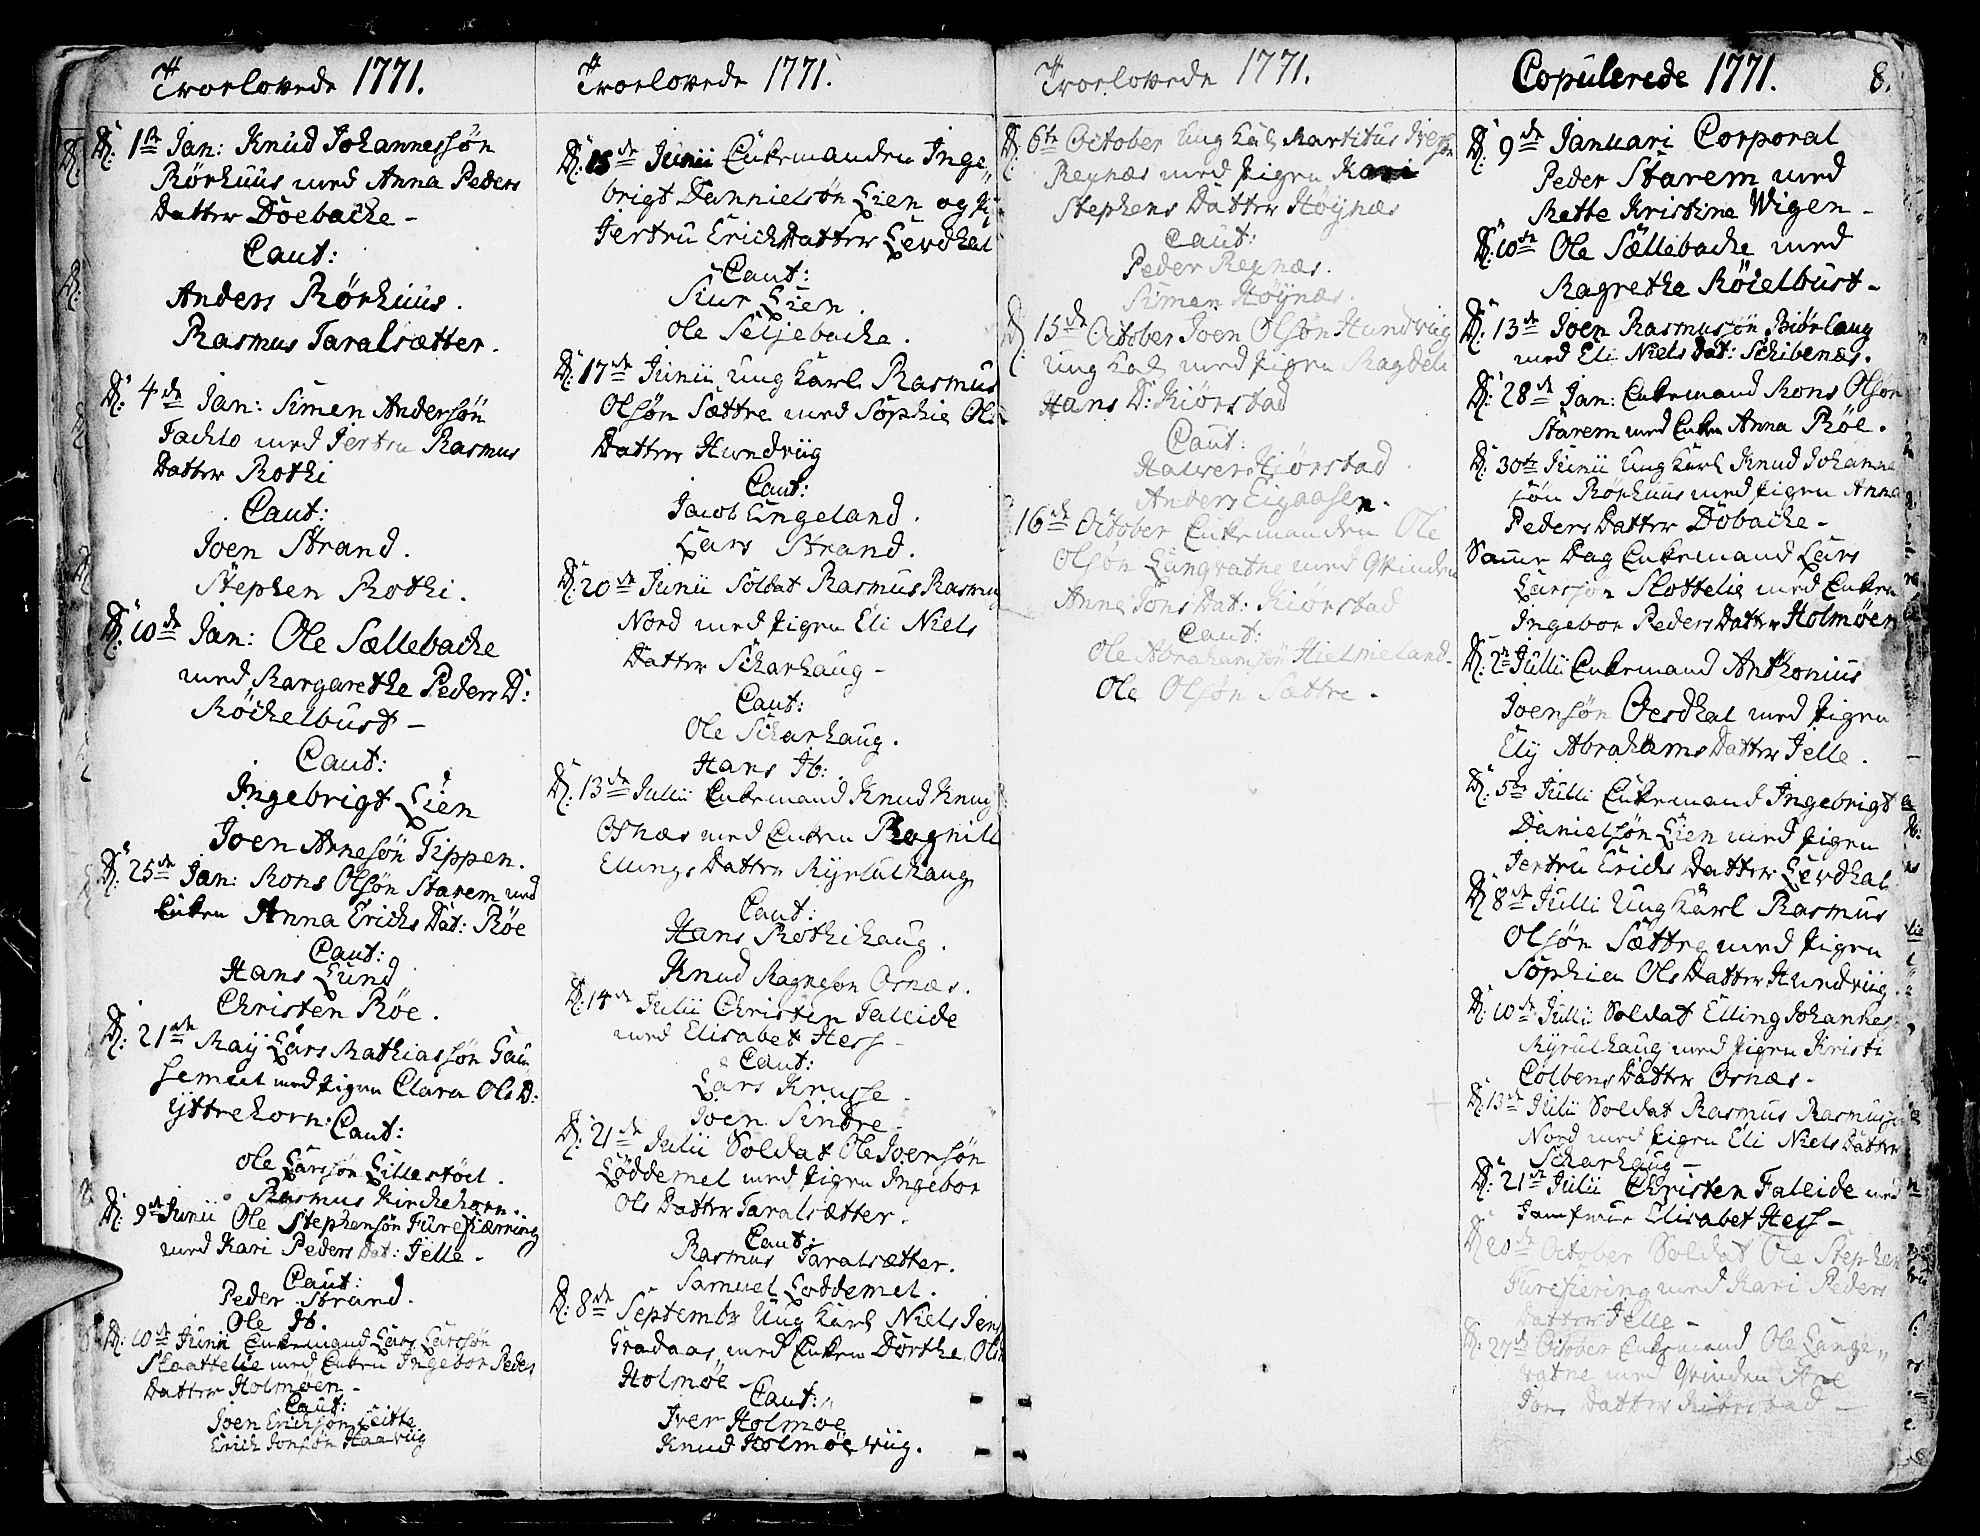 Troelovede 1771.
D: 1ste Jan: Knud Johannessøn
Rörhuus med Anna Peders
Datter Döebacke -
Caut:
Anders Rörhuus.
Rasmus Taralsætter.
D: 4de Jan: Simen Andersøn
med Jertru Rasmus
Datter Rothi
Caut:
Joen Strand.
Stephen Rothi.
D: 10de Jan: Ole Sællebacke
med Margarethe Peders D:
Röckelbust -
Caut:
Ingebrigt Lien
Joen Arnesøn Tippen.
D: 25de Jan: Mons Olsøn Starem med
Enken Anna Erichs Dat: Röe
Caut:
Hans Lund
Christen Röe.
D: 21de Maÿ Lars Mathiassøn Gau
semeel med Pigen Clara Ols D:
Yttrehorn. Caut:
Ole Larssøn
Rasmus Kirchehorn.
D: 9de Junii Ole Stephensøn Furefiærring
med Kari Peders Dat: Jelle -
Caut:
Peder Strand.
Ole Ib.
D: 10de Junii Enkemand Lars Larssøn
Slaattelie med Enken Ingebor Peders
Datter Holmøen -
Caut:
Joen Erichsøn Leitte
Erich Jonsøn Haarviig
Troelovede 1771.
D: 15de Junii Enkemanden Inge„
brigt Dannielsøn Lien og P:
Jertru Erichs Datter Lerdhal
Caut:
Siur Lien.
Ole Seljebacke.
D: 17de Junii Ung Karl Rasmus
Olsøn Sættre med Sophia Ols
Datter Hundviig
Caut:
Jacob Engeland.
Lars Strand.
D: 20de Junii Soldat Rasmus Rasmus
Nord med Pigen Eli Niels
Datter Scharhaug -
Caut:
Ole Scharhaug.
Hans Ib:
D: 13de Julii Enkemand Knud Knud
Osnæs med Enken Ragnill
Ellings Datter Myrlulhaug
Caut:
Hans Rothihaug.
Knud Osnæs.
D: 14de Julii Christen Faleide
med Elisabet Hess -
Caut:
Lars Krusse -
Joen Sindre -
D: 21de Julii Soldat Ole Joensøn
Löddemel med Pigen Ingebor
Ols Datter Taralsætter.
Caut:
Rasmus Taralsætter.
Samuel Loddemel.
D: 8de Septembr Ung Karl Niels Jens
Gradaas med Enken Dorthe Ols
Holmöe -
Caut:
Iver Holmoe
Knud Holmöe viig.
Troelovede 1771.
D: 6te October Ung Karl Martitus Iversøn
Reynæs med Pigen Kari
Stephens Datter Höynæs
Caut:
Peder Reynæs.
Simen Höynæs.
D: 15de October Joen Olsøn Hundviig
Ung Karl med Pigen Magdeli
Hans D: Kiörstad
Caut:
Halver Kiörstad.
Anders Eigaasen.
16de October Enkemanden Ole
Olsøn Langvatne med Qvinden
Anne Jons Dat: Kiörstad
Caut:
Ole Abrahamsøn Hielmeland -
Ole Olsøn Sættre -
Copulerede 1771. 8.
D: 9de Januari Corporal
Peder Starem med
Mette Kristine Wigen -
D: 10de Ole Sællebacke med
Magrethe Röckelbust -
D: 13de Joen Rasmussøn Biörlaug
med Eli Niels Dat: Schibenæs.
D: 28de Jan: Enkemand Mons Olsøn
Starem med Enken Anna Röe.
D: 30te Junii Ung Karl Knud Johanne
søn Rörhuus med Pigen Anna
Peders Datter Döbacke -
Samme Dag Enkemand Lars
Larssøn Slottelie med Enken
Ingebor Peders Datter Holmöen
D: 2de Julii Enkemand Anthonius
Joensøn Oesdhal med Pigen
Ely Abrahams Datter Jelle.
D: 5te Julii Enkemand Ingebrigt
Danielsøn Lien med Pigen
Jertru Erichs Datter Lerdhal
D: 8de Julii Ung Karl Rasmus
Olsøn Sættre med Pigen
Sophia Ols Datter Hundviig.
D: 10de Julii Soldat Elling Johannes
Myrulhaug med Pigen Kristi
Colbens Datter Osnæs -
D: 13de Julii Soldat Rasmus Rasmus
Nord med Pigen Eli Niels Datter
Scharhaug -
D: 21de Julii Christen Faleide med
Jomfrue Elisabet Hess -
D: 20de October Soldat Ole Stephen
Furefiering med Kari Peders
Datter Jelle -
D: 27de October Enkemand Ole Lange„
vatne med Qvinden Ane
Jons Datter Kiörstad -